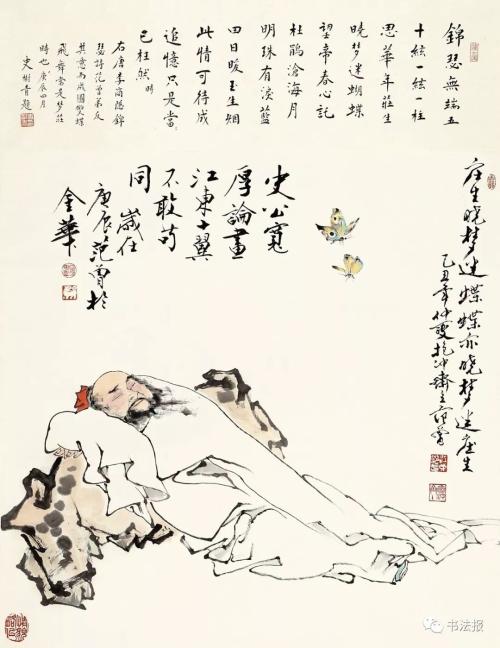 錦瑟無端五
十絃一絃一柱
思華年莊生
曉梦迷蝴蝶
望帝春心託
杜鵑滄海月
明珠有淚藍
田日暖玉生烟
此情可待成
追憶只是當
已枉然 時
右唐李商隱錦
瑟詩范曾弟反
其意而成圖雙蝶
飛舞當是梦莊
時也 庚辰四月
史樹青題
庄生晓梦迷蝶蝶亦晓梦迷庄生
乙丑年仲夏抱冲齋主范曾
史公寬
厚論畫
江東十翼
不敢苟
同 歲在
庚辰范曾於
金華
书法报